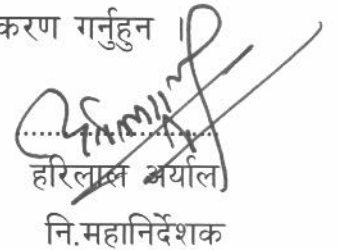 करण गर्नुहुन ।
....................
हरिलाल अर्याल
नि.महानिर्देशक